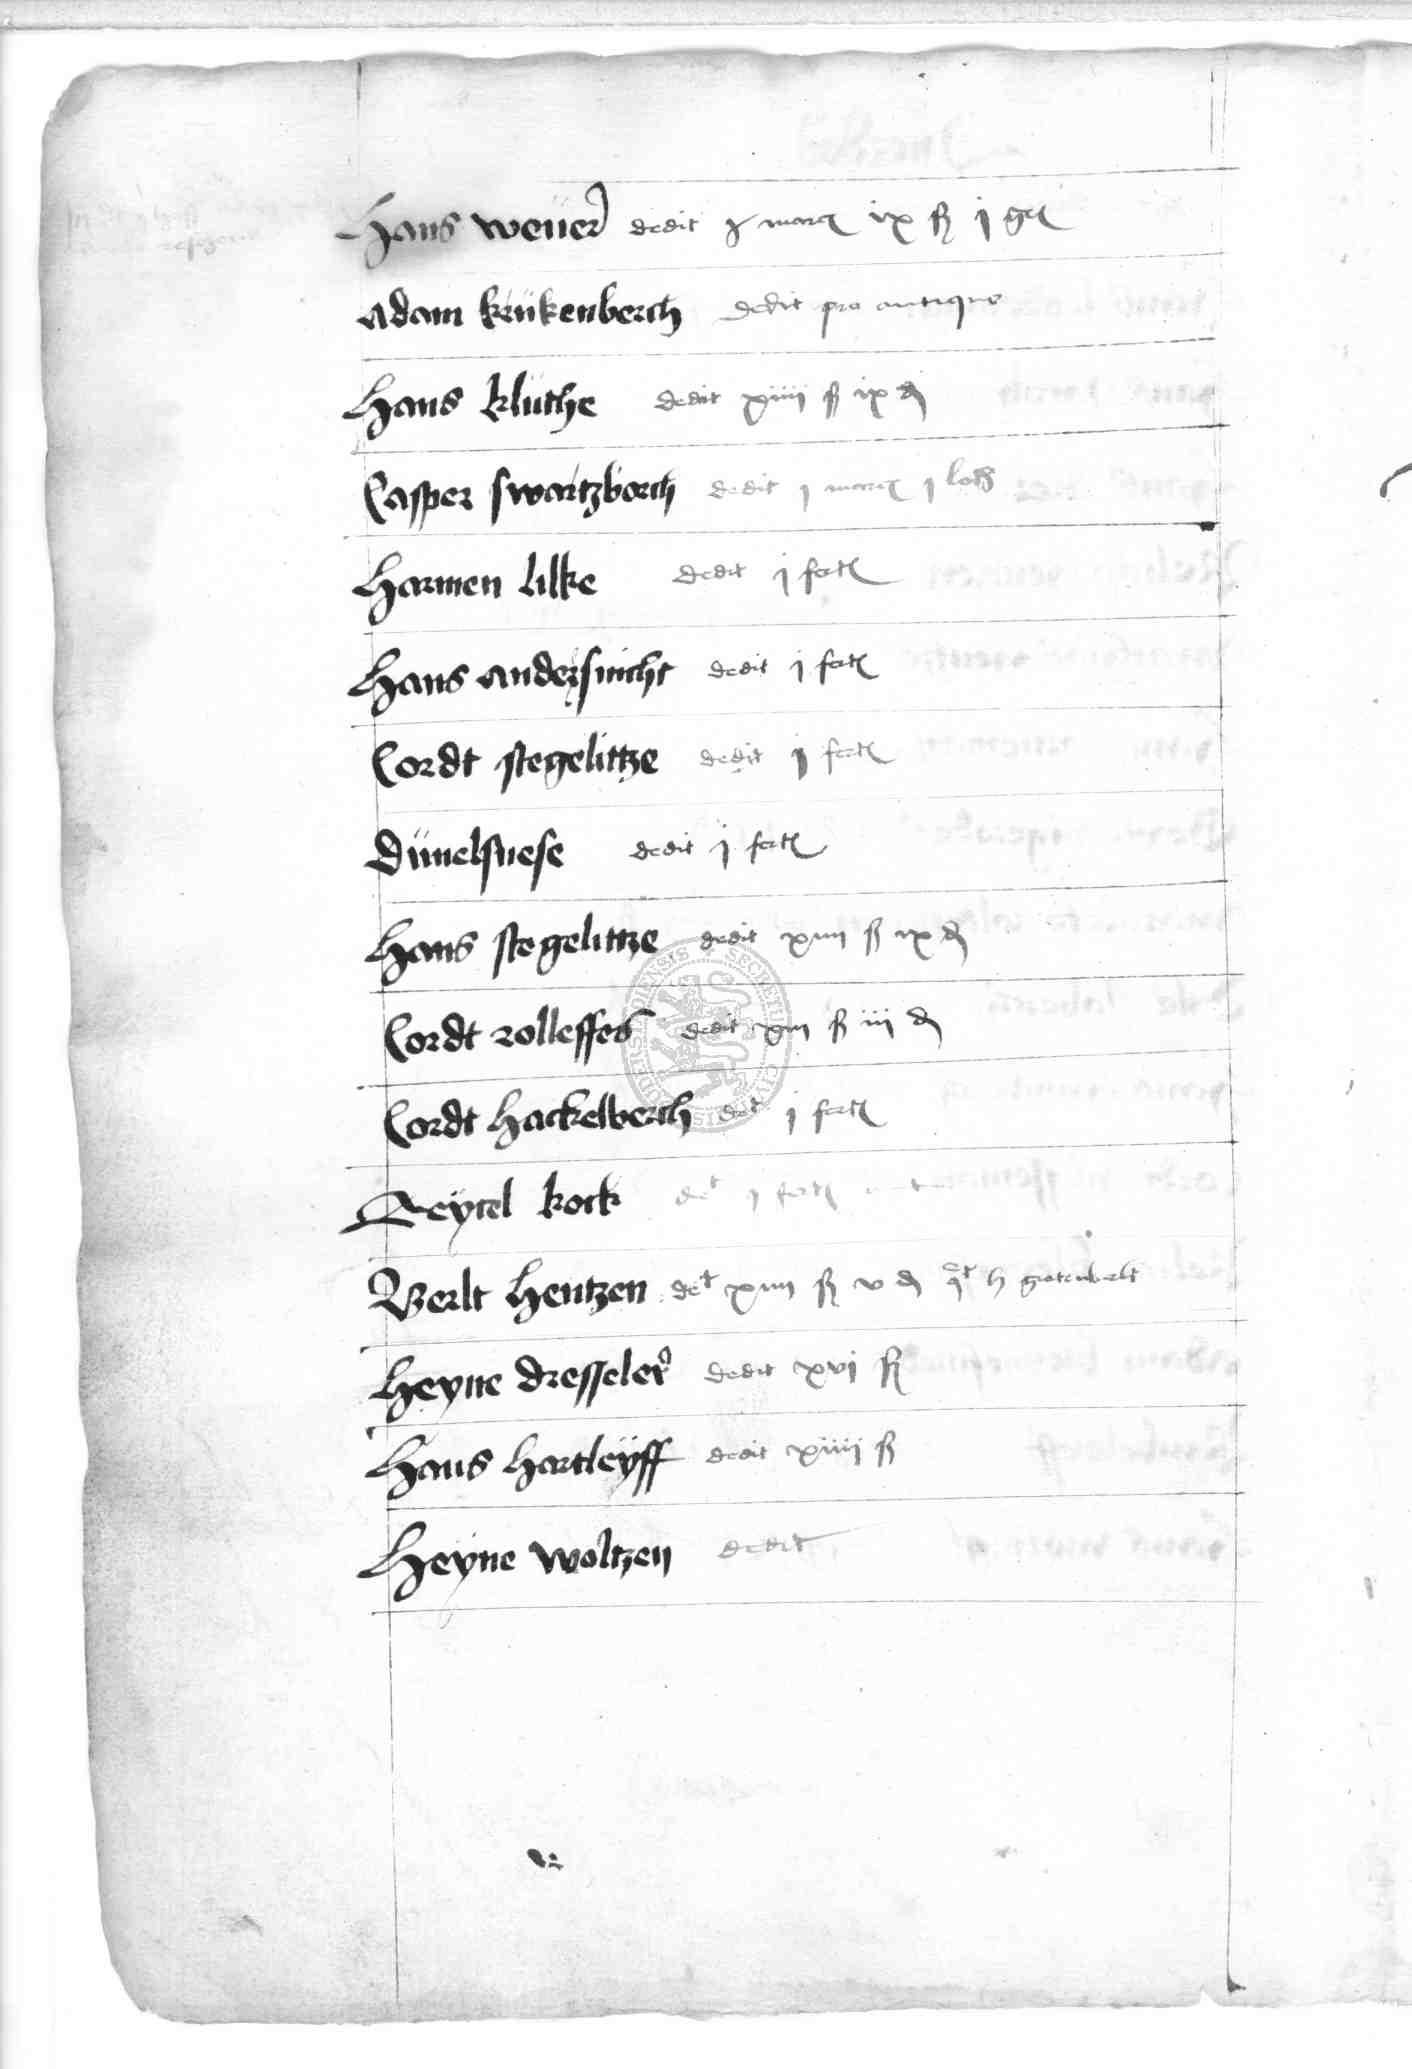 Hans wener dedit j marc ix ß j gr
Adam krükenberch dedit pro antiquo
Hans klüthe dedit xiiii ß ix d
Casper swartzborch dedit j marc j loth
Harmen lilke dedit j fert
Hans andersnicht dedit j fert
Cordt stegelittze dedit j fert
Düuelsnese dedit j fert
Hans stegelittze dedit xiiii ß ix d
Cordt rolleffes dedit xiii ß iii d
Cordt hackelberch det j fert
kock det j fert
hentzen det xiiii ß v d h grotenvelt
Heyne dresseler dedit xvi ß
Hans hartleyff dedit xiiii ß
Heyne woltzen dedit